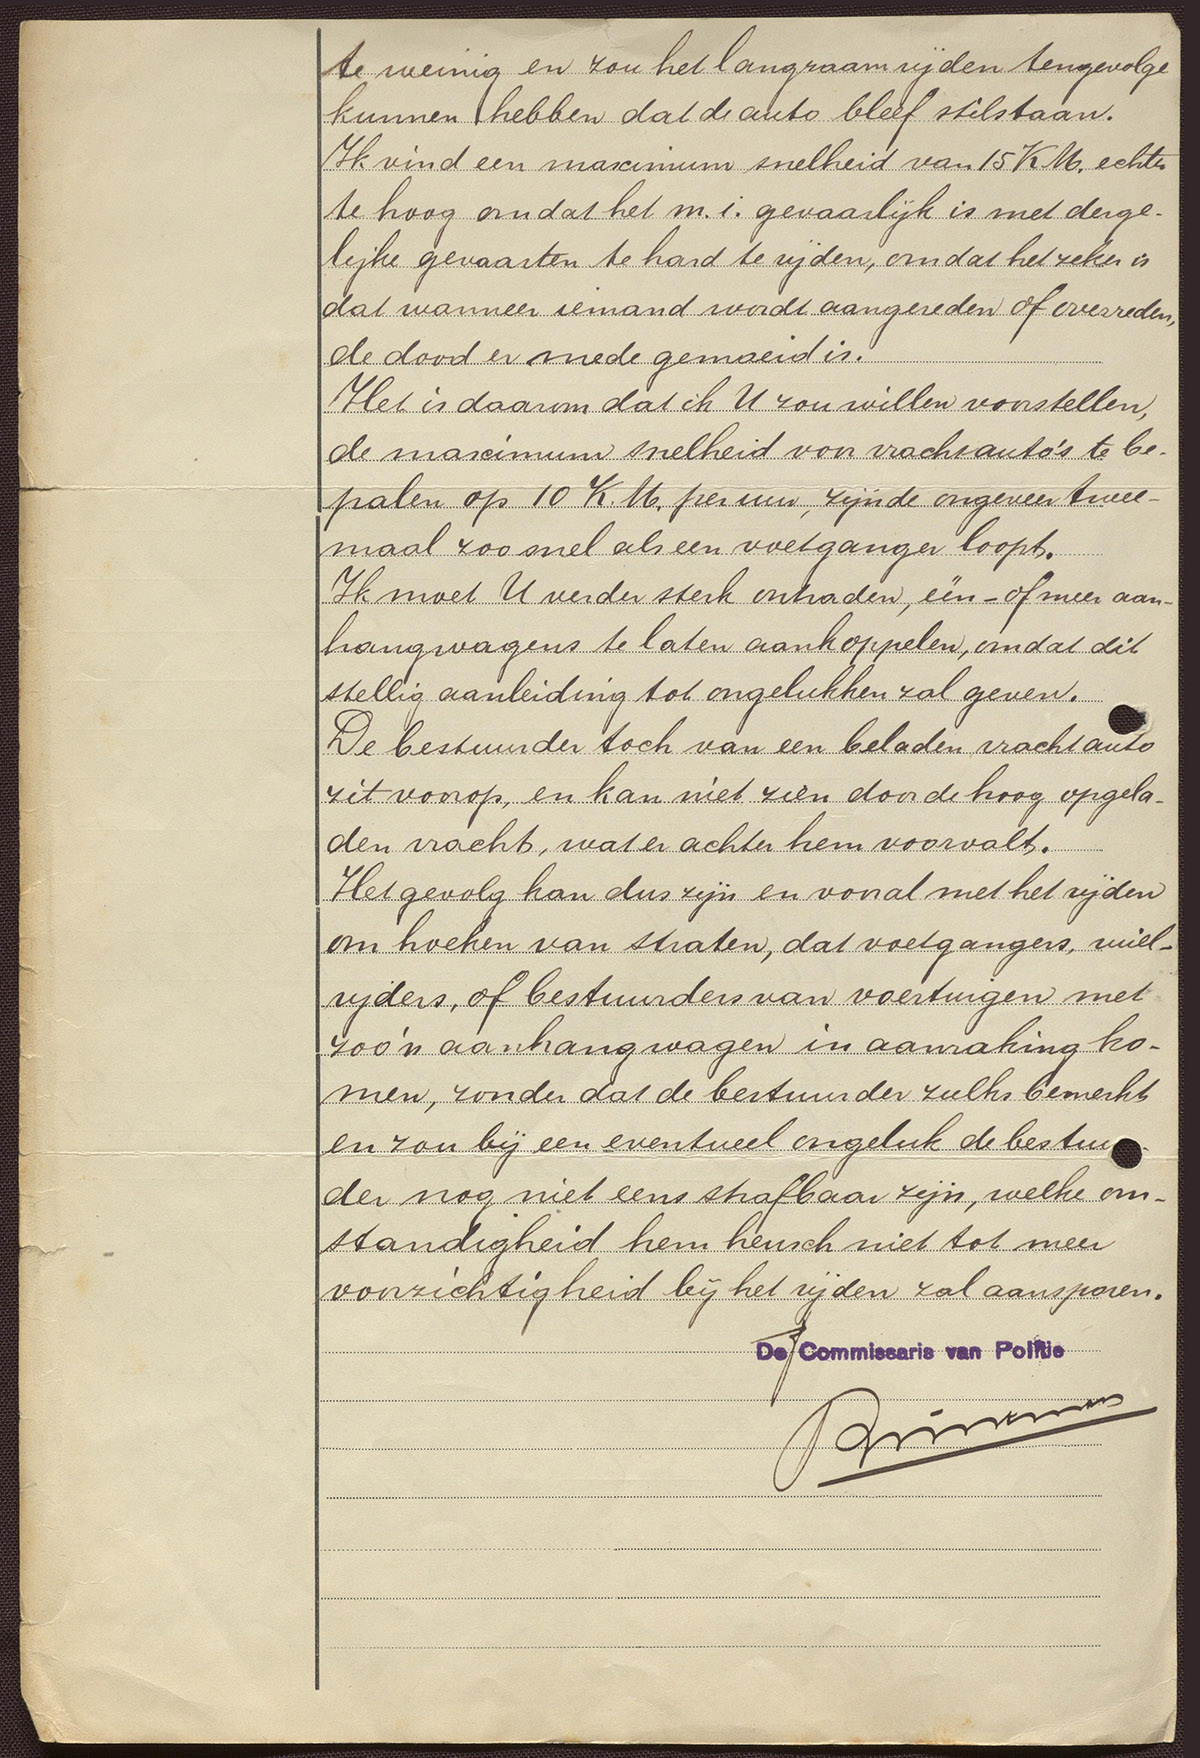 te weinig en zou het langzaam rijden tengevolge
kunnen hebben dat de auto bleef stilstaan.
Ik vind een maximum snelheid van 15 K.M. echter
te hoog omdat het m.i. gevaarlijk is met derge-
lijke gevaarten te hard te rijden, omdat het zeker is
dat wanneer iemand wordt aangereden of overreden,
de dood er mede gemoeid is.
Het is daarom dat ik U zou willen voorstellen,
de maximum snelheid voor vrachtauto's te be-
palen op 10 K.M. per uur, zijnde ongeveer twee-
maal zoo snel als een voetganger loopt.
Ik moet U verder sterk ontraden, één- of meer aan-
hangwagens te laten aankoppelen, omdat dit
stellig aanleiding tot ongelukken zal geven.
De bestuurder toch van een beladen vrachtauto
zit voorop, en kan niet zien door de hoog opgela-
den vracht, wat er achter hem voorvalt.
Het gevolg kan dus zijn en vooral met het rijden
om hoeken van straten, dat voetgangers, wiel-
rijders, of bestuurders van voertuigen met
zoo'n aanhangwagen in aanraking ko-
men, zonder dat de bestuurder zulks bemerkt
en zou bij een eventueel ongeluk de bestuur-
der nog niet eens strafbaar zijn, welke om-
standigheid hem heusch niet tot meer
voorzichtigheid bij het rijden zal aansporen.
De Commissaris van Politie